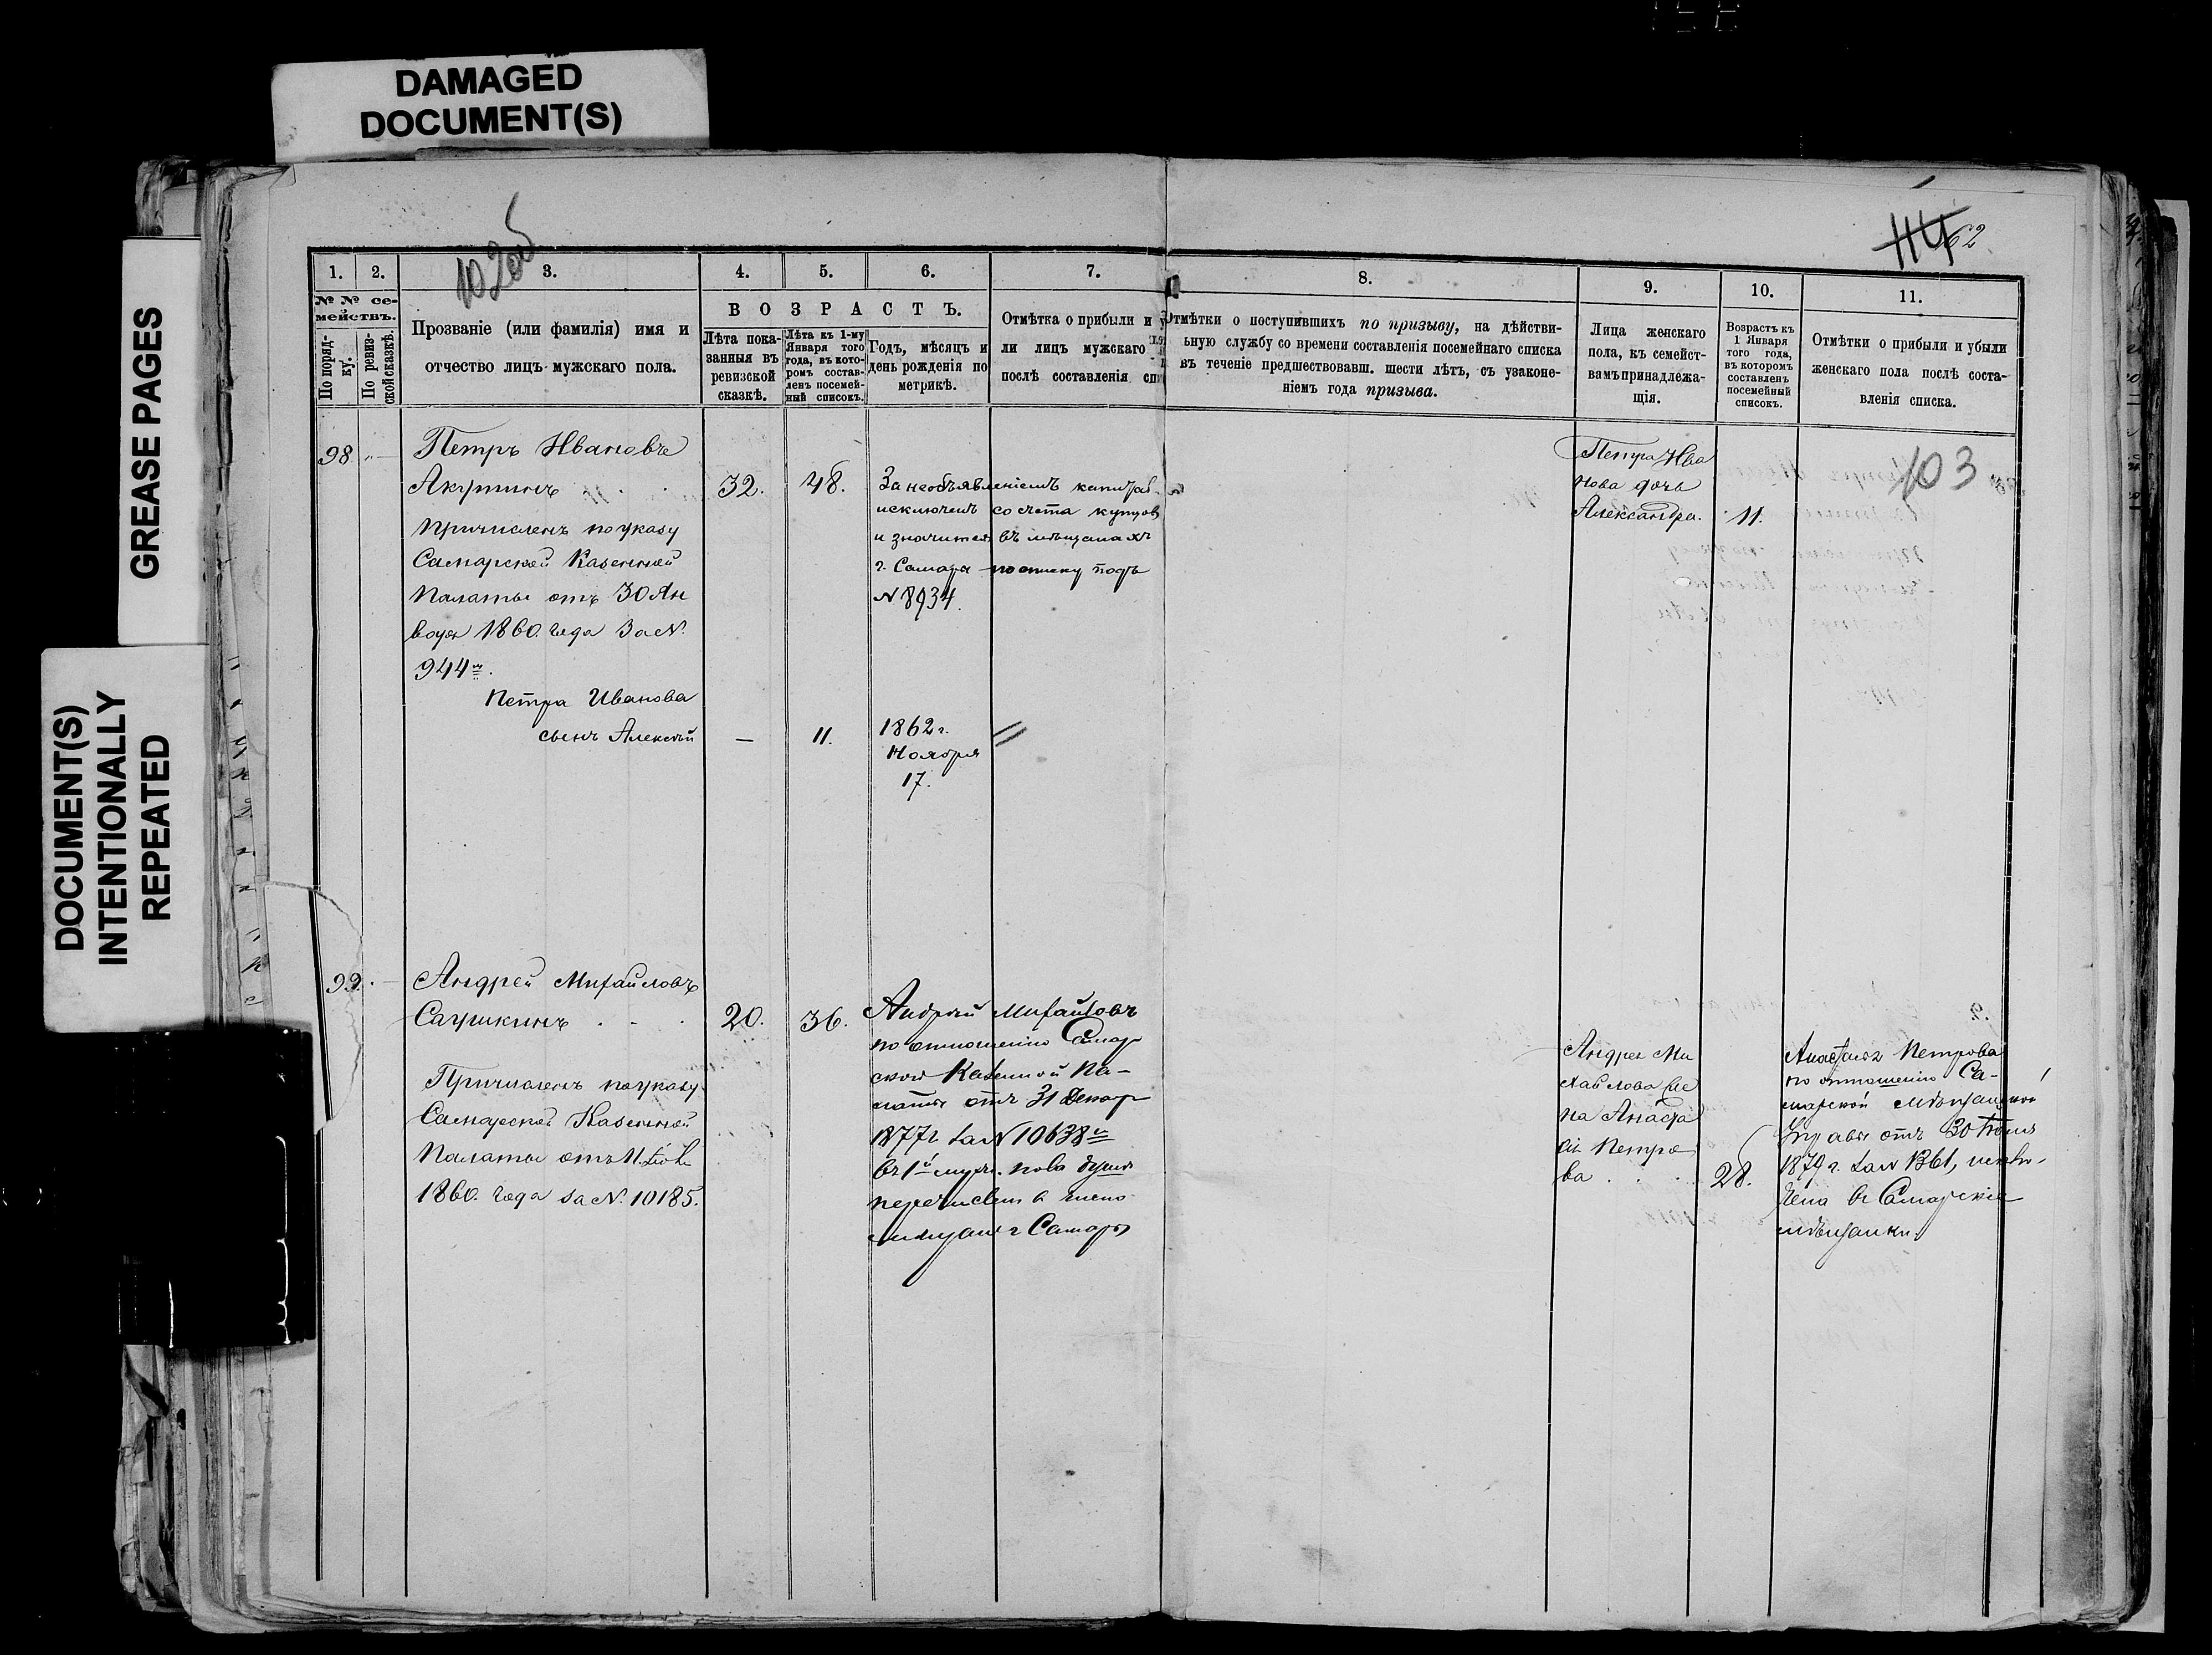 DAMAGED
DOCUMENT(S)
GREASE PAGES
DOCUMENT(S)
INTENTIONALLY
REPEATED
102об
114 62
1. 2. 3. 4. 5. 6. 7. 8. 9. 10. 11.
№ № се-
мействъ.
По поряд-
ку.
По ревиз-
ской сказкѣ.
Прозваніе (или фамилія) имя и
отчество лицъ мужскаго пола.
ВОЗРАСТЪ.
Лѣта пока-
занныя въ
ревизской
сказкѣ.
Лѣта къ 1-му
Января того
года, въ кото-
ромъ состав-
ленъ посемей-
ный списокъ.
Годъ, мѣсяцъ и
день рожденія по
метрикѣ.
Отмѣтка о прибыли и у
ли лицъ мужскаго
послѣ составленія спи
Отмѣтки о поступившихъ по призыву, на дѣйстви-
ьную службу со времени составленія посемейнаго списка
въ теченіе предшествовавш. шести лѣтъ, съ узаконе-
ніемъ года призыва.
Лица женскаго
пола, къ семейст-
вамъ принадлежа-
щія.
Возрастъ къ
1 Января
того года,
въ которомъ
составленъ
посемейный
списокъ.
Отмѣтки о прибыли и убыли
женскаго пола послѣ соста-
вленія списка.
103
98
Петръ Ивановъ
Акутинъ
32. 48.
причисленъ по указу
Самарской Казенной
Палаты отъ 30 Ян
варя 1860. года За N.
944
За необъявленіемъ капитал
исключенъ со счета купцовъ
и значится въ мѣщанахъ
г. Самара по списку подъ
N 8934.
Петра Ива
нова дочь
Александра. 11.
Петра Иванова
сынъ Алексѣй
— 11.
1862 г.
Ноября
17.
99.
Андрей Михайловъ
Саушкинъ
20. 36.
Причисленъ по указу
Самарской Казенной
Палаты отъ 11
1860. года за N. 10185.
Андрей Михайловъ
по отношенію Самар
ской Казенной Па-
латы отъ 31 Декабр
1877 г за N 10638
перечисленъ в число
мѣщанъ г Самары
Андрея Ми
хайлова же
на Анаста
сія Петро
ва 28.
Анастасія Петрова
по отношенію Са-
марской Мѣщанской
Управы отъ 30
1879 г. за N 1361,
чена въ Самарскія
мѣщанки.